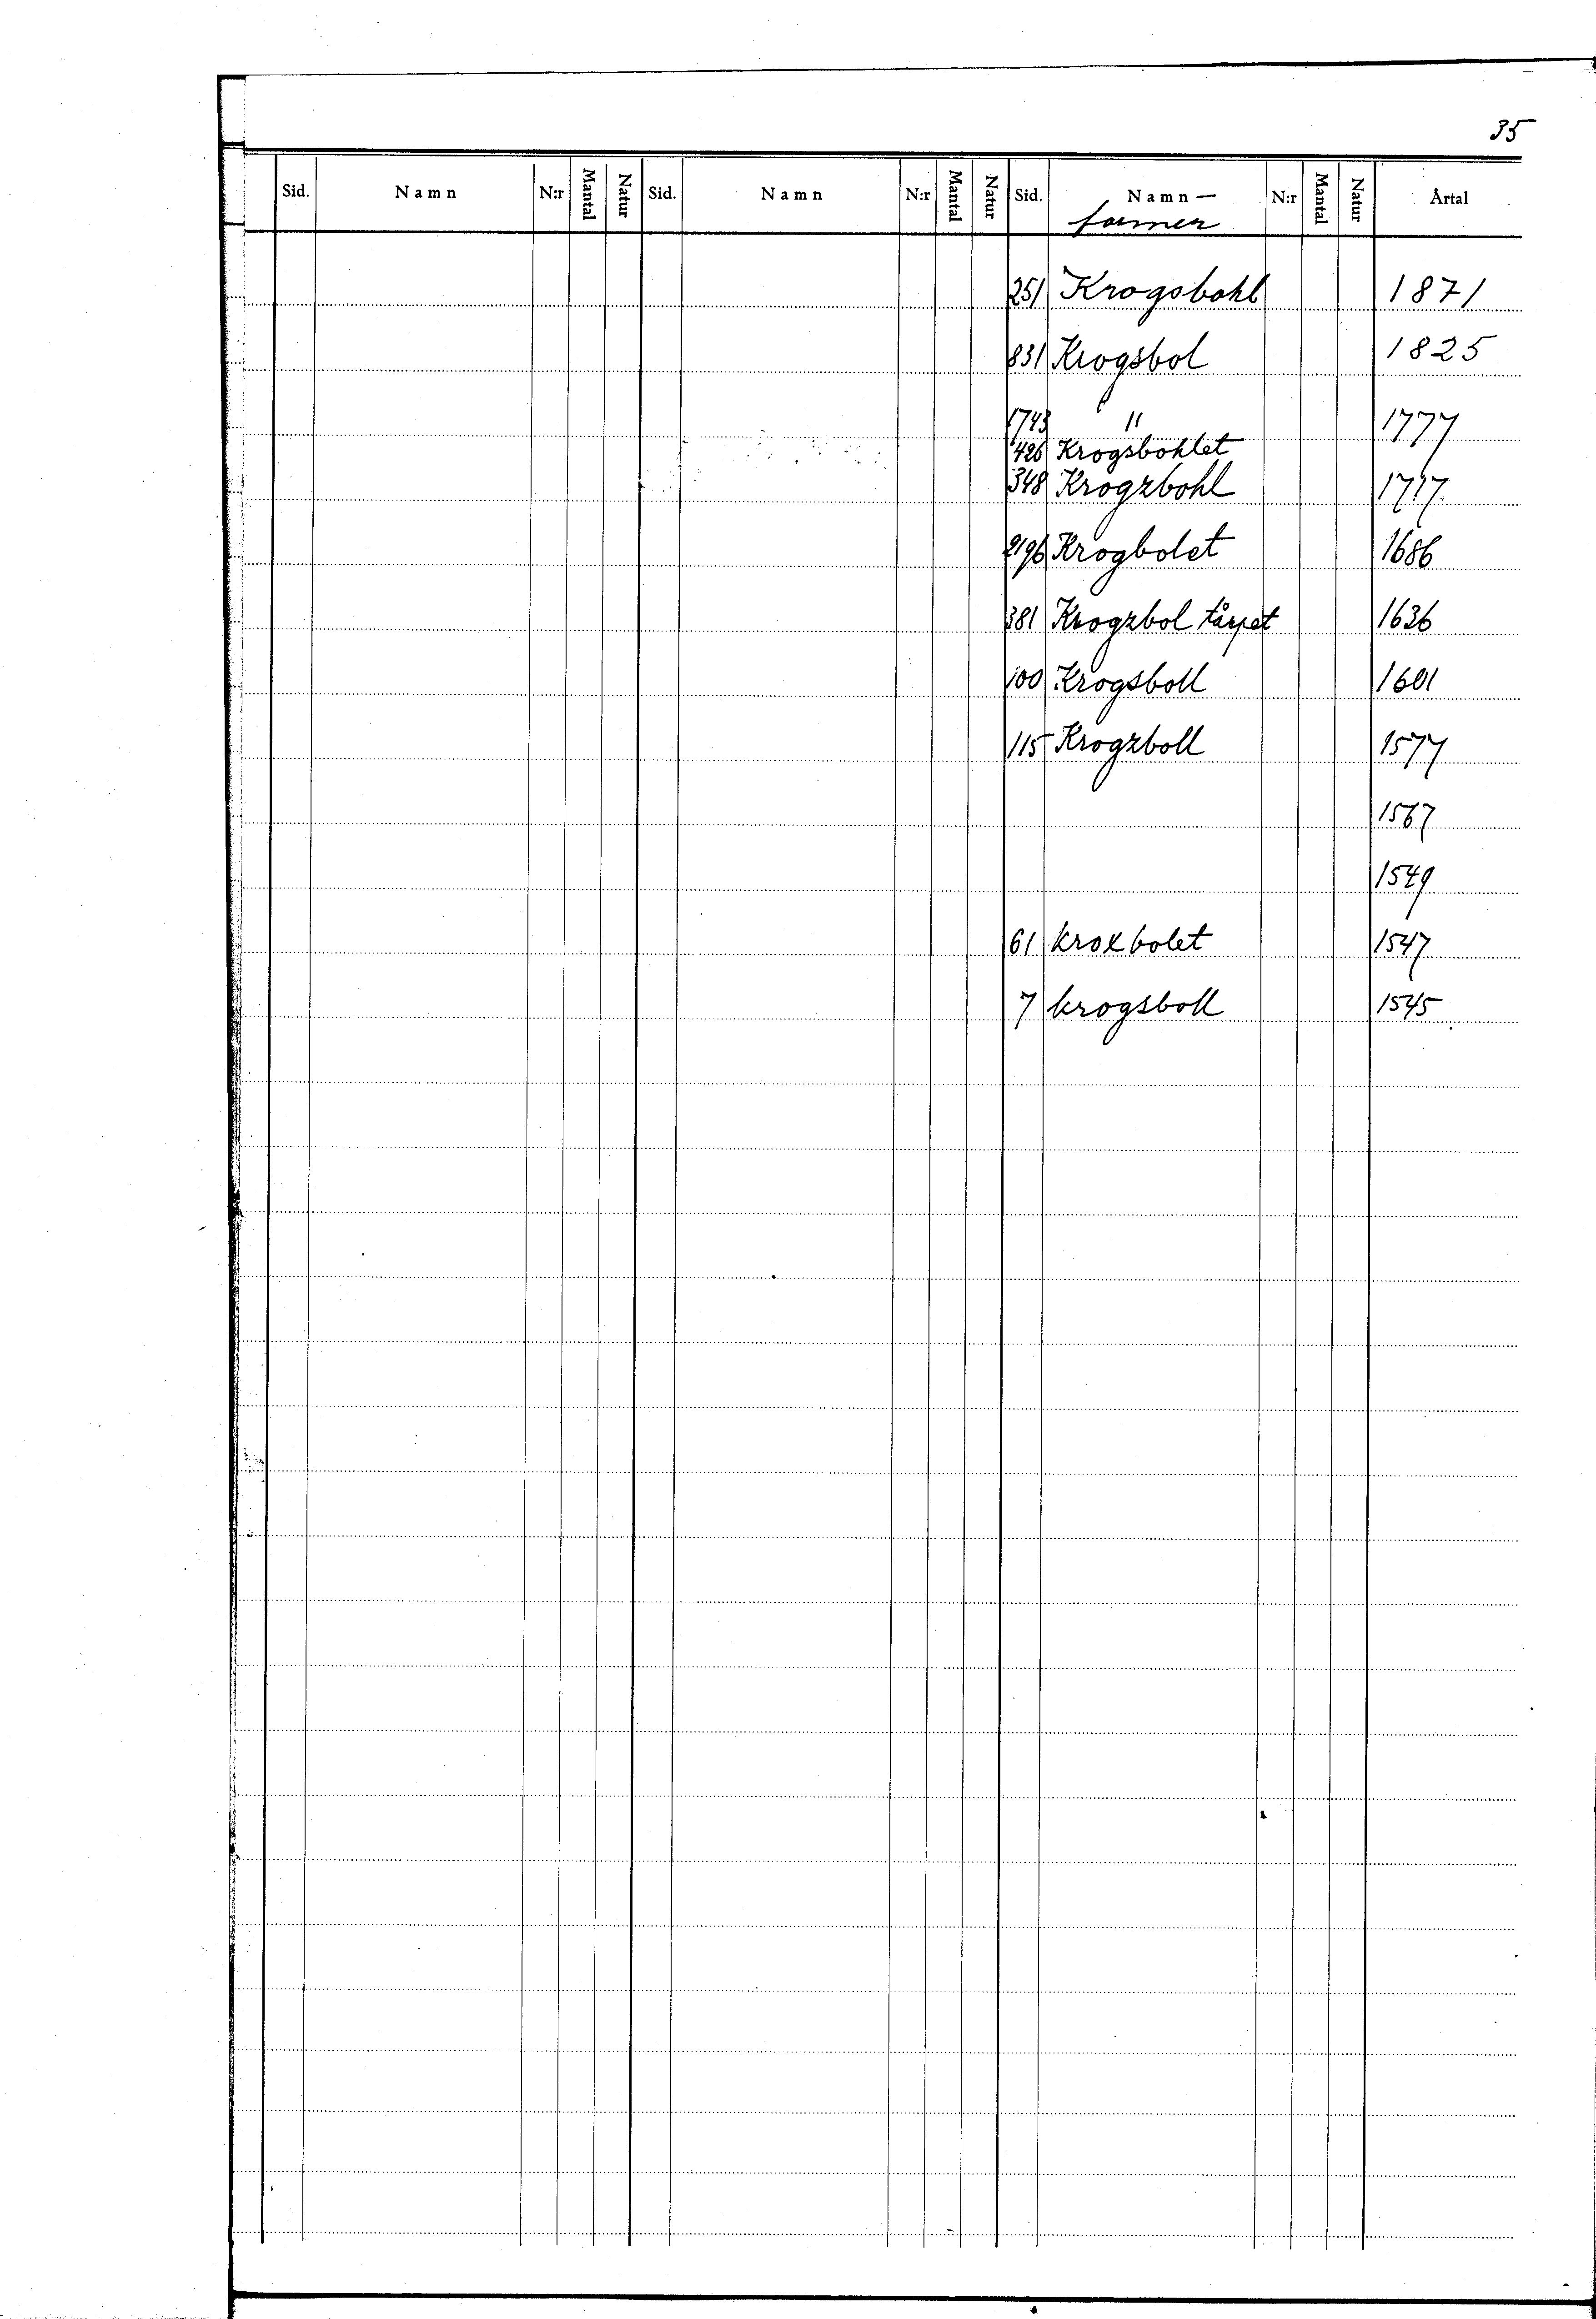 35
Sid. Namn N:r Mantal Natur Sid. Namn N:r Mantal Natur Sid. Namn — N:r Mantal Natur Årtal
former
251 Krogsbohl 1871
831 Krogsbol 1825
1743 " 1777
426 Krogsbohlet
348 Krogzbohl 1717
2196 Krogbolet 1686
381 Krogzbol tårpet 1636
100 Krogsboll 1601
115 Krogzboll 1577
1567
1549
61 kroxbolet 1547
7 krogsboll 1545